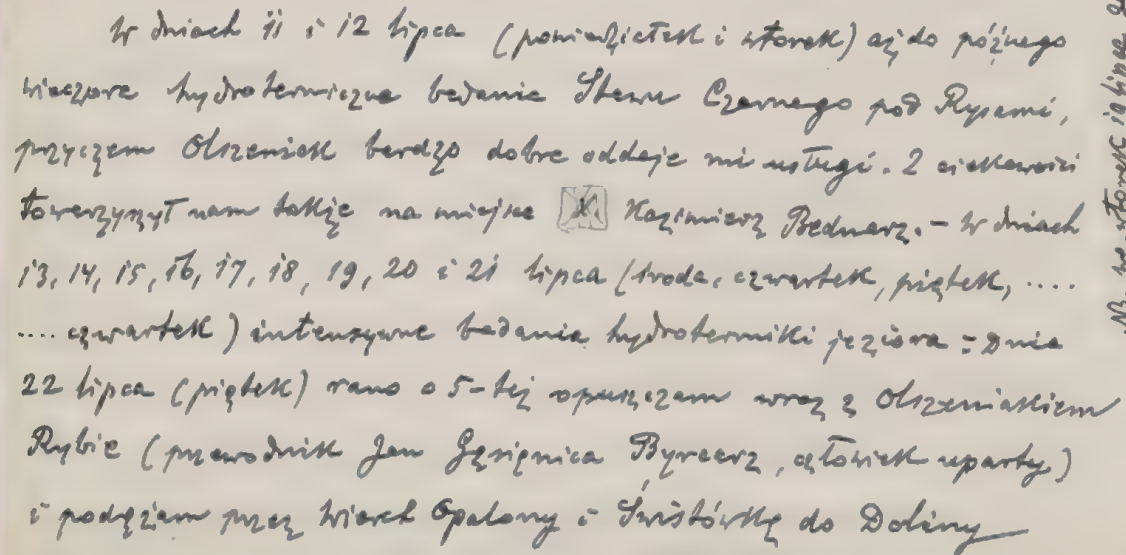 W dniach 11 i 12 lipca (poniedziałek i wtorek) aż do późnego
wieczora hydrotermiczne badanie Stawu Czarnego pod Rysami,
przyczem Olszeniak bardzo dobre oddaje mi usługi. Z ciekawości
towarzyszył nam także na miejsce Kazimierz Bednarz. – W dniach
13, 14, 15, 16, 17, 18, 19, 20 i 21 lipca (środa, czwartek, piątek, ....
.... czwartek) intensywne badania hydrotermiki jeziora = Dnia
22 lipca (piątek) rano o 5-tej opuszczam wraz z Olszeniakiem
Rybie (przewodnik Jan Gąsienica Byrcarz, człowiek uparty)
i podążam przez Wierch Opalony i Świstówkę do Doliny
NB. we wtorek 19 lipca